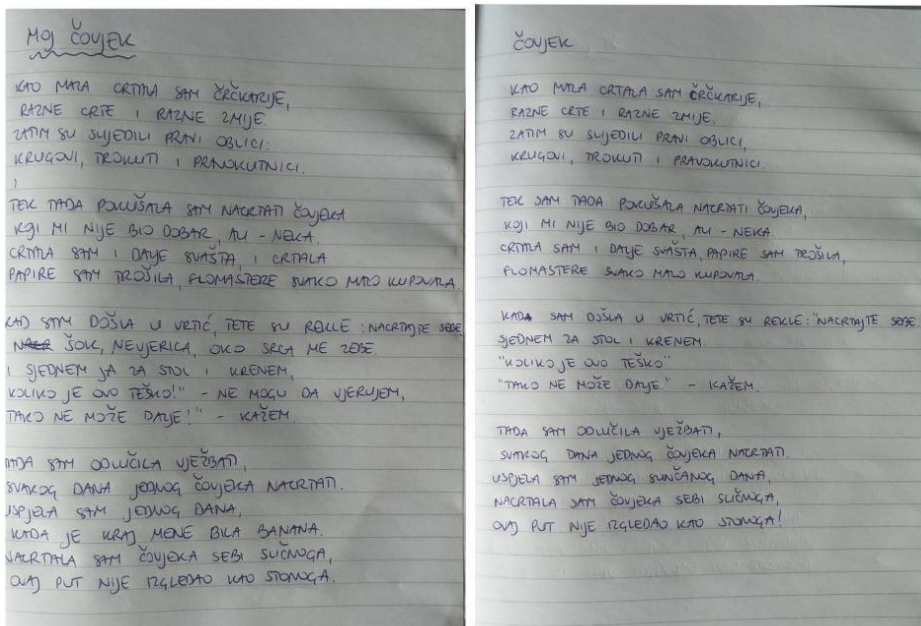 MOJ ČOVJEK
KAO MALA CRTALA SAM ČRČKARIJE,
RAZNE CRTE I RAZNE ZMIJE.
ZATIM SU SLIJEDILI PRAVI OBLICI:
KRUGOVI, TROKUTI I PRAVOKUTNICI.
TEK TADA POKUŠALA SAM NACRTATI ČOVJEKA
KOJI MI NIJE BIO DOBAR, ALI - NEKA.
CRTALA SAM I DALJE SVAŠTA, I CRTALA
PAPIRE SAM TROŠILA, FLOMASTERE SVAKO MALO KUPOVALA.
KAD SAM DOŠLA U VRTIĆ, TETE SU REKLE: NACRTAJTE SEBE
ŠOK, NEVJERICA, OKO SRCA ME ZEBE.
I SJEDNEM JA ZA STOL I KRENEM,
KOLIKO JE OVO TEŠKO!" - NE MOGU DA VJERUJEM,
TAKO NE MOŽE DALJE!" - KAŽEM.
TADA SAM ODLUČILA VJEŽBATI,
SVAKOG DANA JEDNOG ČOVJEKA NACRTATI.
USPJELA SAM JEDNOG DANA,
KADA JE KRAJ MENE BILA BANANA.
NACRTALA SAM ČOVJEKA SEBI SLIČNOGA,
OVAJ PUT NIJE IZGLEDAO KAO STONOGA.
ČOVJEK
KAO MALA CRTALA SAM ČRČKARIJE,
RAZNE CRTE I RAZNE ZMIJE.
ZATIM SU SLIJEDILI PRAVI OBLICI,
KRUGOVI, TROKUTI I PRAVOKUTNICI.
TEK SAM TADA POKUŠALA NACRTATI ČOVJEKA,
KOJI MI NIJE BIO DOBAR, ALI - NEKA.
CRTALA SAM I DALJE SVAŠTA, PAPIRE SAM TROŠILA,
FLOMASTERE SVAKO MALO KUPOVALA.
KADA SAM DOŠLA U VRTIĆ, TETE SU REKLE: "NACRTAJTE SEBE
SJEDNEM ZA STOL I KRENEM.
"KOLIKO JE OVO TEŠKO"
"TAKO NE MOŽE DALJE." - KAŽEM.
TADA SAM ODLUČILA VJEŽBATI,
SVAKOG DANA JEDNOG ČOVJEKA NACRTATI.
USPJELA SAM JEDNOG SUNČANOG DANA,
NACRTALA SAM ČOVJEKA SEBI SLIČNOGA,
OVAJ PUT NIJE IZGLEDAO KAO STONOGA!